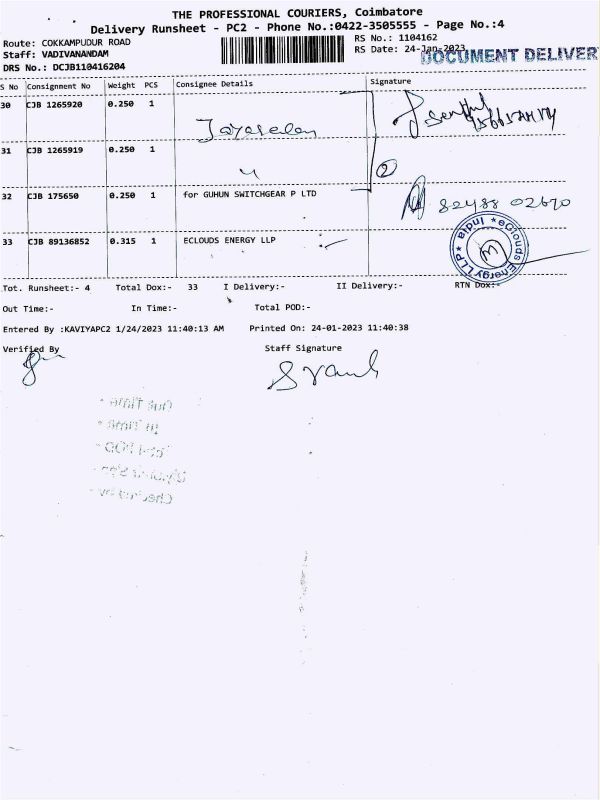 THE PROFESSIONAL COURIERS, Coimbatore
Delivery Runsheet - PC2 - Phone No.:0422-3505555 - Page No.:4
Route: COKKAMPUDUR ROAD
Staff: VADIVANANDAM
DRS No.: DCJB110416204
RS No.: 1104162
RS Date: 24-Jan-2023
DOCUMENT DELIVER
S No Consignment No Weight PCS Consignee Details Signature
30 CJB 1265920 0.250 1
31 CJB 1265919 0.250 1
②
32 CJB 175650 0.250 1 for GUHUN SWITCHGEAR P LTD
82488 02670
33 CJB 89136852 0.315 1 ECLOUDS ENERGY LLP
eClouds Energy LLP * India *
Tot. Runsheet:- 4 Total Dox:- 33 I Delivery:- II Delivery:- RTN Dox:-
Out Time:- In Time:- Total POD:-
Entered By :KAVIYAPC2 1/24/2023 11:40:13 AM Printed On: 24-01-2023 11:40:38
Verified By Staff Signature
Out Time
In Time